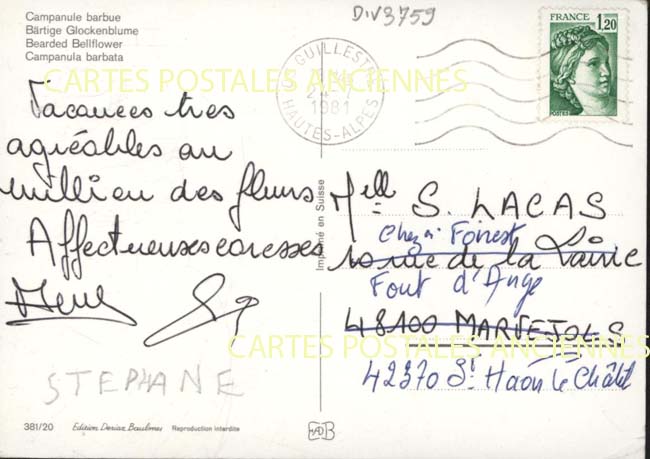 Campanule barbue
Bärtige Glockenblume
Bearded Bellflower
Campanula barbata
DIV3759
GUILLESTRE
1981
HAUTES-ALPES
FRANCE
1,20
POSTES
CARTES POSTALES ANCIENNES
Vacances très
agréables au
milieu des fleurs
Affectueuses caresses
STEPHANE
Imprimé en Suisse
Melle S. LACAS
chez Mr Forest
10 rue de la
Font d'Ange
48100 MARVEJOLS
42370 St Haon le Châtel
CARTES POSTALES ANCIENNES
381/20 Edition Deriaz Baulmes Reproduction interdite